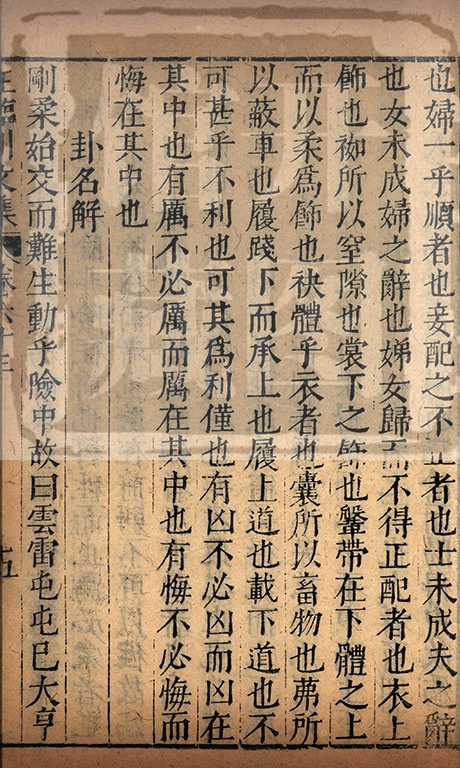 也婦一乎順者也妾配之不正者也士未成夫之辭
也女未成婦之辭也娣女歸而不得正配者也衣上
飾也袽所以窒隙也裳下之飾也鞶帶在下體之上
而以柔爲飾也袂體乎衣者也囊所以畜物也茀所
以蔽車也履踐下而承上也履上道也載下道也不
可甚乎不利也可其爲利僅也有凶不必凶而凶在
其中也有厲不必厲而厲在其中也有悔不必悔而
悔在其中也
卦名解
剛柔始交而難生動乎險中故曰雲雷屯屯已大亨
王臨川文集 卷六十五